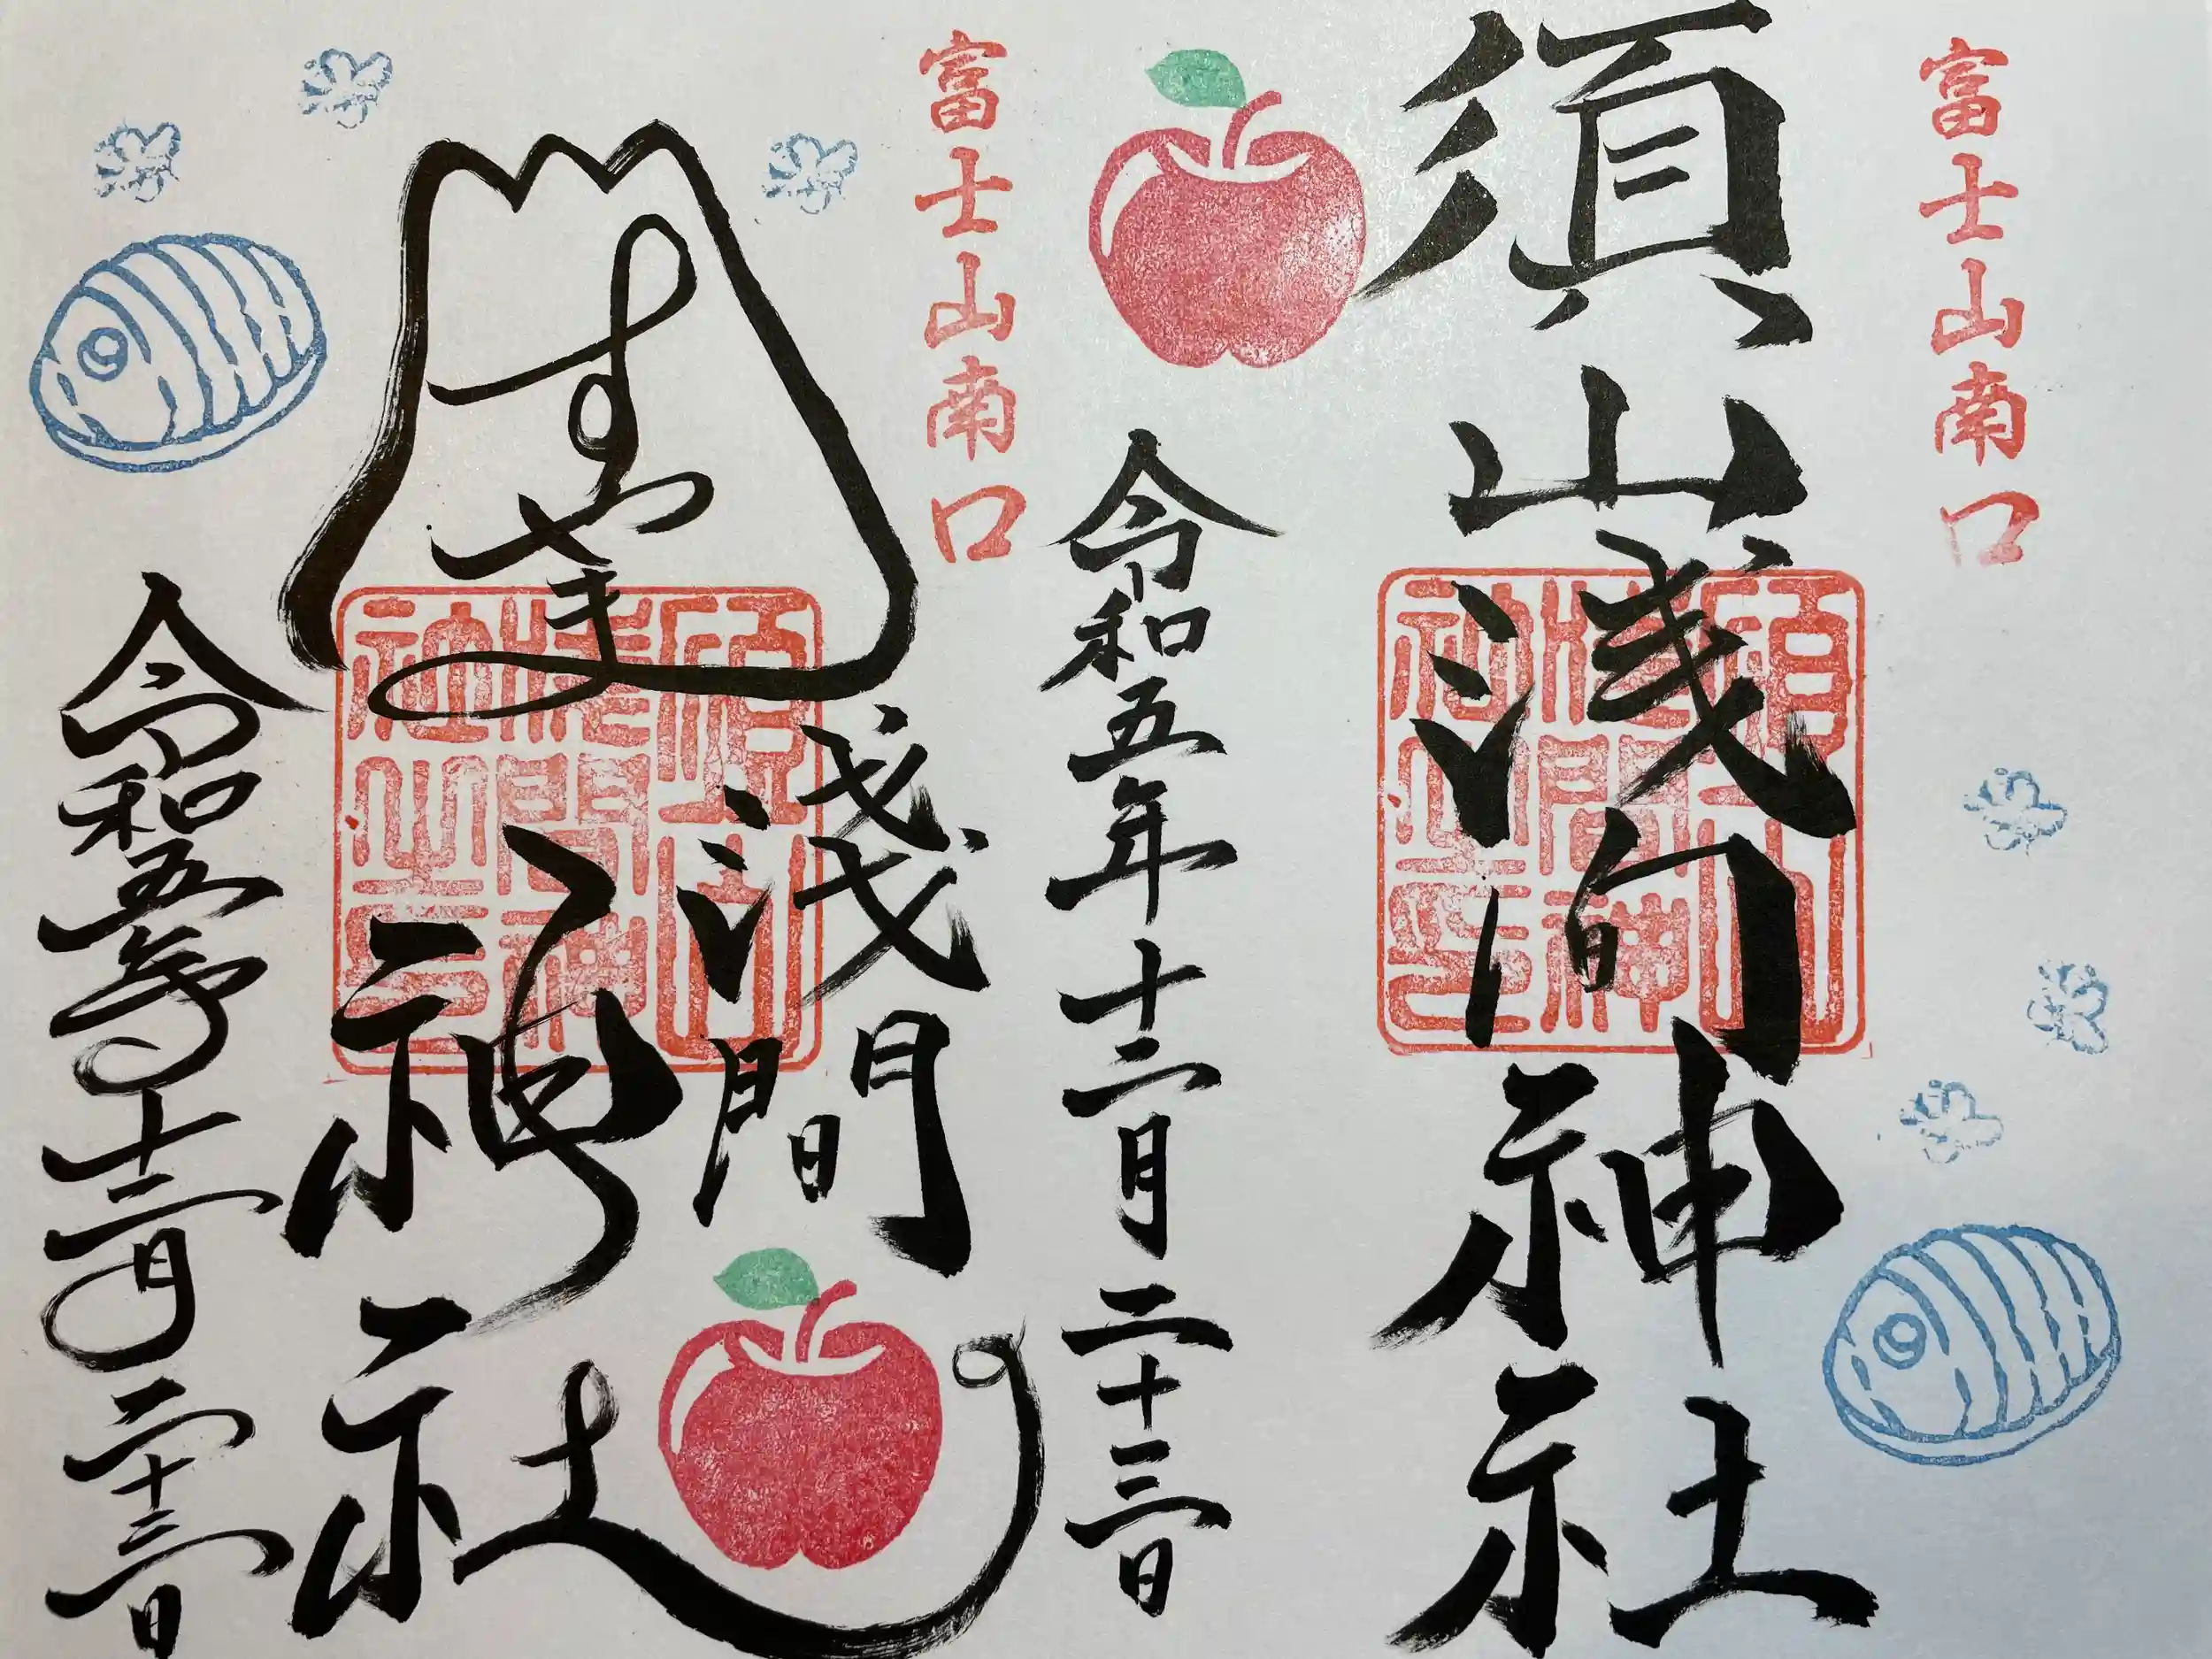 富士山南口
須山浅间神社
須山浅間神社之印
令和五年十二月二十三日
富士山南口
すやま
浅間
神社
須山浅間神社之印
令和五年十二月二十三日